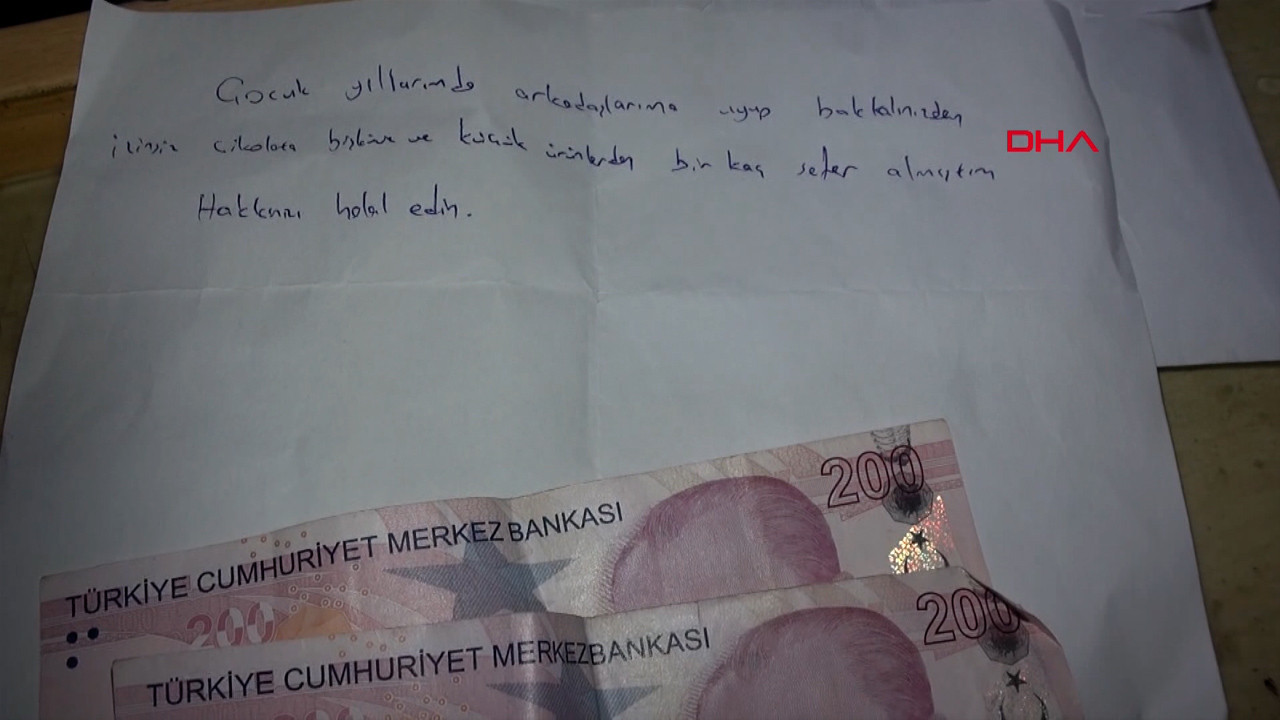 Çocuk yıllarımda arkadaşlarıma uyup bakkalınızden
izinsiz çikolata bisküvi ve küçük ürünlerden bir kaç sefer almıştım
Hakkınızı helal edin.
DHA
TÜRKİYE CUMHURİYET MERKEZ BANKASI
200
200
TÜRKİYE CUMHURİYET MERKEZ BANKASI
200
200